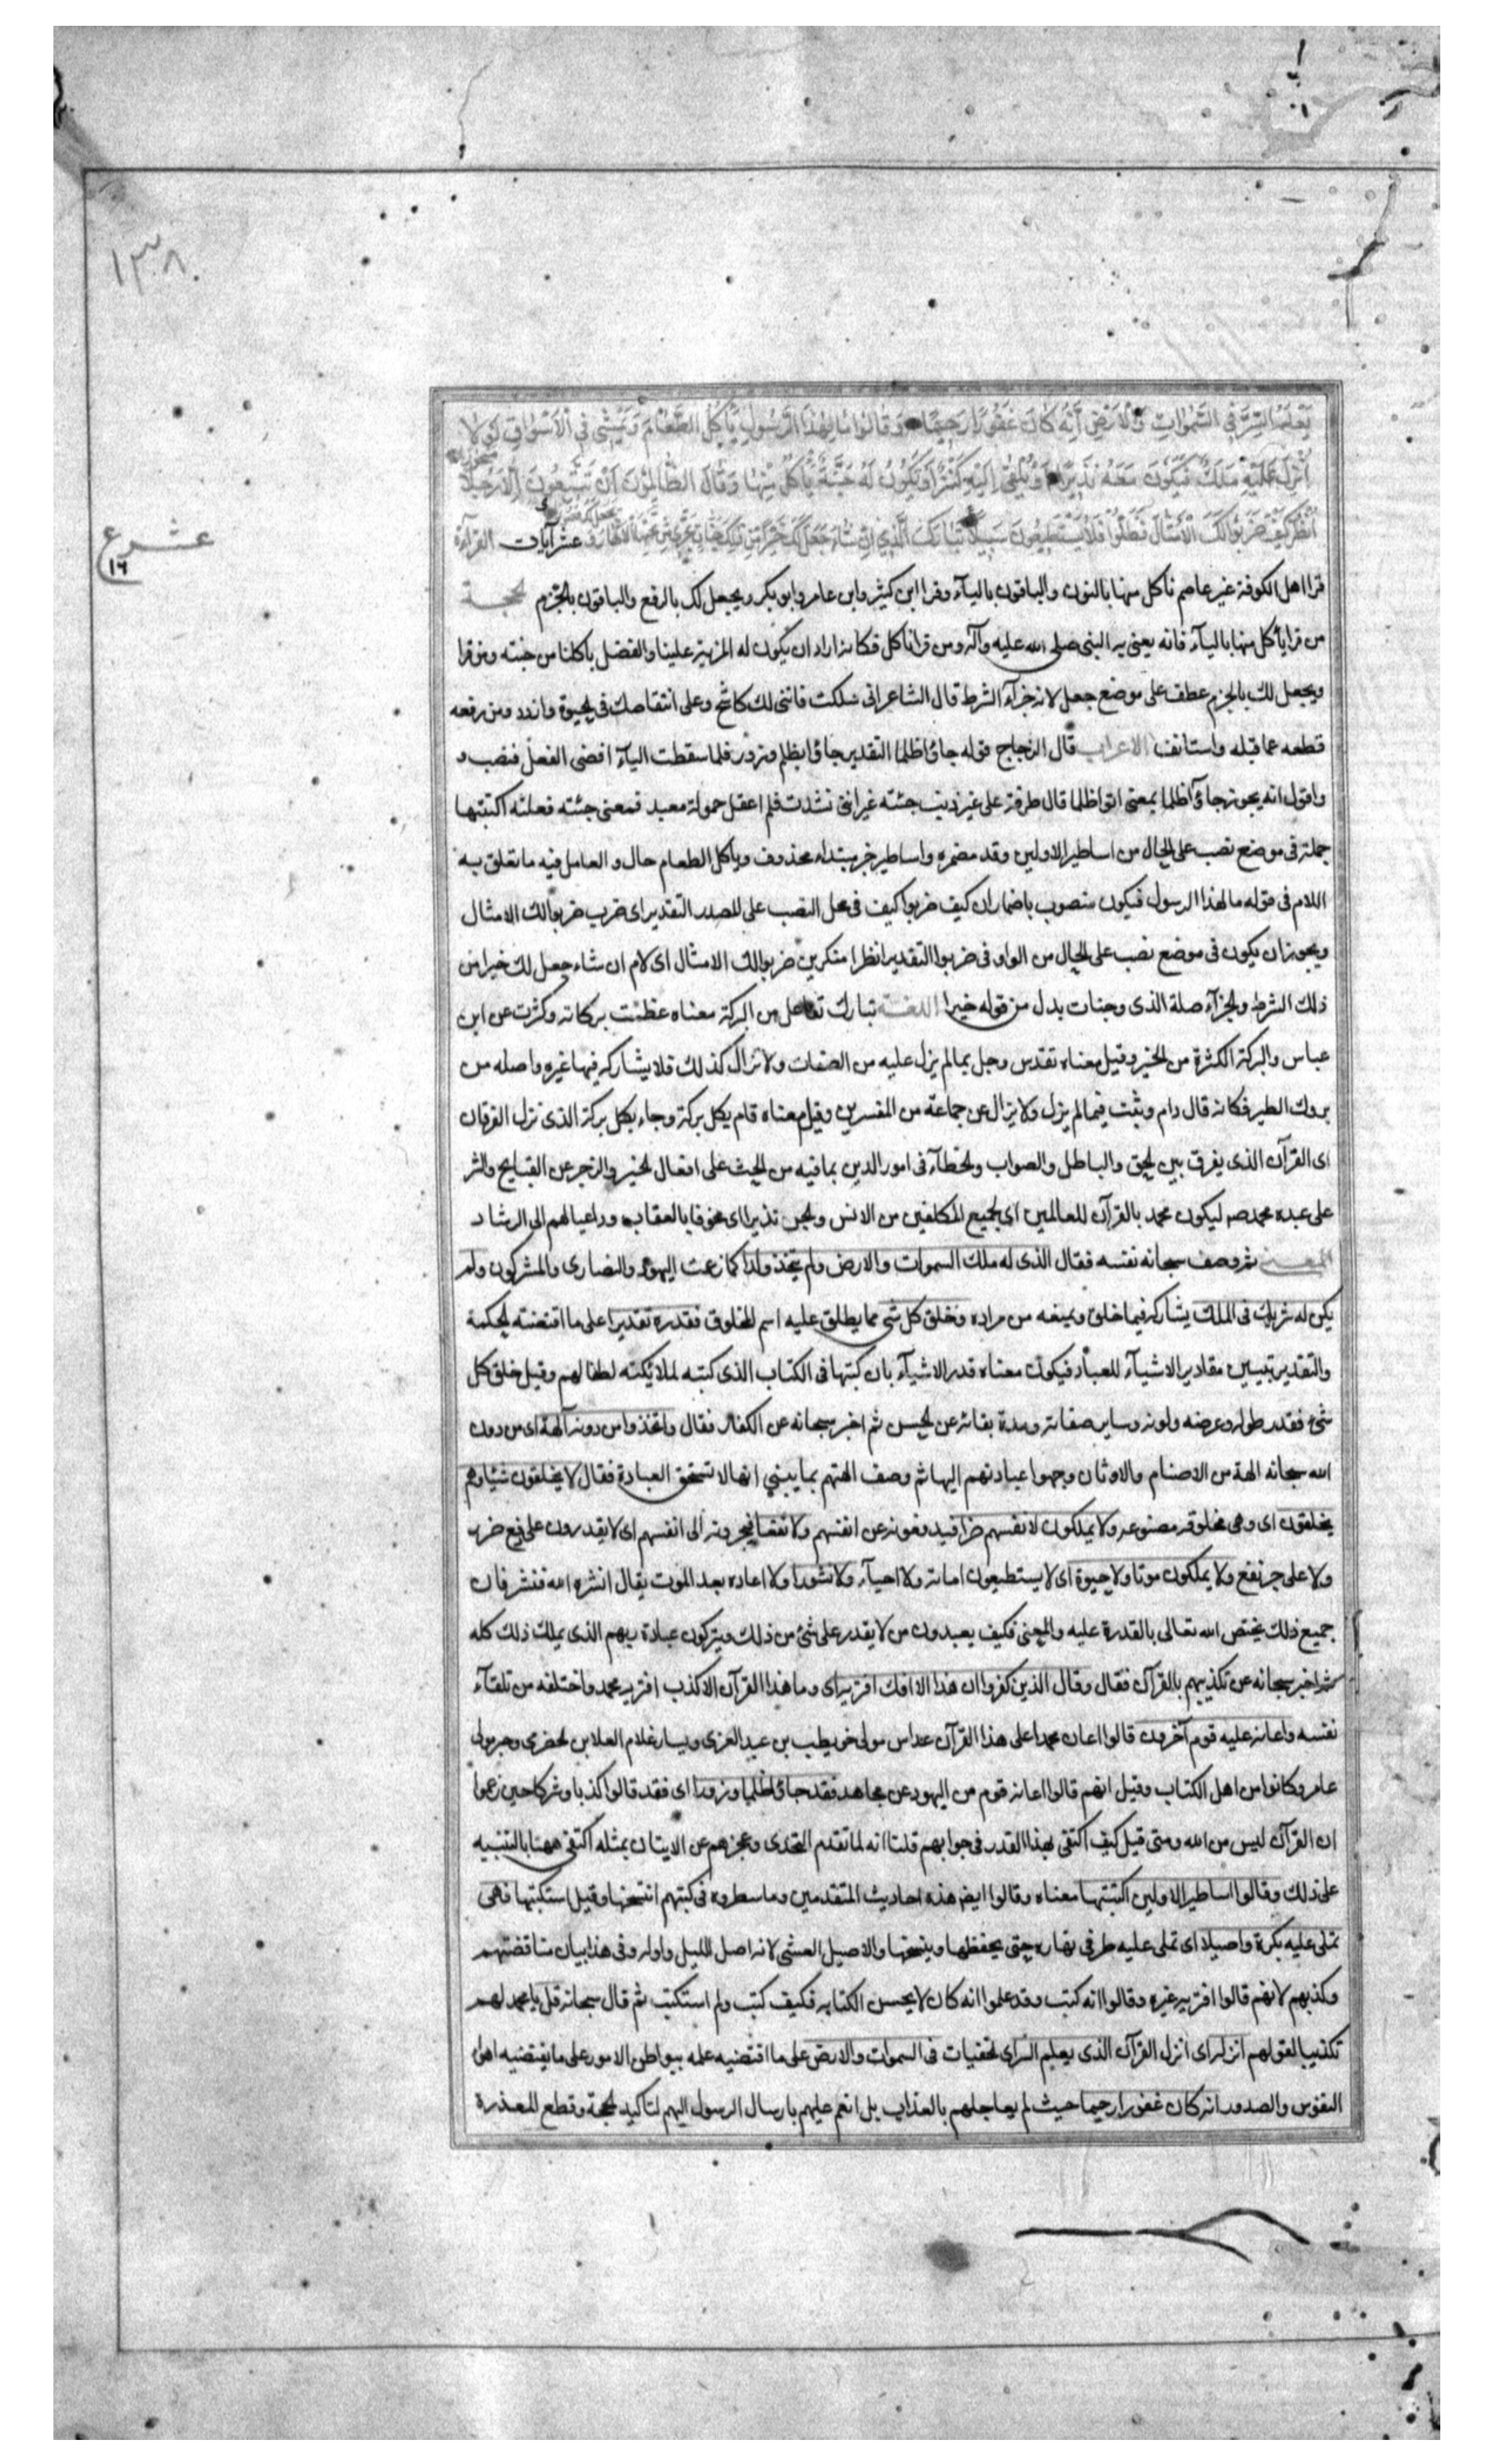 ١٣٨
يَعْلَمُ السِّرَّ فِي السَّمٰوَاتِ وَالْاَرْضِ اِنَّهُ كَانَ غَفُورًا رَحِيمًا وَقَالُوا مَا لِهٰذَا الرَّسُولِ يَأْكُلُ الطَّعَامَ وَيَمْشِي فِي الْاَسْوَاقِ لَوْلَا
اُنْزِلَ عَلَيْهِ مَلَكٌ فَيَكُونَ مَعَهُ نَذِيرًا اَوْ يُلْقٰى اِلَيْهِ كَنْزٌ اَوْ تَكُونُ لَهُ جَنَّةٌ يَأْكُلُ مِنْهَا وَقَالَ الظَّالِمُونَ اِنْ تَتَّبِعُونَ اِلَّا رَجُلًا مسحورا
اُنْظُرْ كَيْفَ ضَرَبُوا لَكَ الْاَمْثَالَ فَضَلُّوا فَلَا يَسْتَطِيعُونَ سَبِيلًا تَبَارَكَ الَّذِي اِنْ شَاءَ جَعَلَ لَكَ خَيْرًا مِنْ ذٰلِكَ جَنَّاتٍ تَجْرِي مِنْ تَحْتِهَا الْاَنْهَارُ عشر آيات القرآءة
عشر ع
١٦
قرا اهل الكوفة غير عاصم ناكل منها بالنون والباقون باليآء وقرا ابن كثير وابن عامر وابو بكر ويجعل لك بالرفع والباقون بالجزم الحجة
من قرا يأكل منها باليآء فانه يعنى به النبى صلى الله عليه وآله ومن قرا ناكل فكانه اراد ان يكون له المزية علينا والفضل باكلنا من جنته ومن قرا
ويجعل لك بالجزم عطف على موضع جعل لانه جزآء الشرط قال الشاعر انى سلكت فاننى لك كاشح وعلى انتقاصك فى الحيوة وازدد ومن رفعه
قطعه عما قبله واستانف الاعراب قال الزجاج قوله جاؤا ظلما التقدير جاؤا بظلم وزور فلما سقطت اليآء افضى الفعل فنصب و
واقول انه يجوز جاؤا ظلما بمعنى اتوا ظلما قال طرفة على غير ذنب جئته غير اننى نشدت فلم اعقل حمولة معبد فمعنى جئته فعلته اكتتبها
جملة فى موضع نصب على الحال من اساطير الاولين وقد مضمره واساطير خبر مبتداء محذوف وياكل الطعام حال والعامل فيه ما تعلق به
اللام فى قوله ما لهذا الرسول فيكون منصوب باضمار ان كيف ضربوا كيف فى محل النصب على المصدر التقدير اى ضرب ضربوا لك الامثال
ويجوز ان يكون فى موضع نصب على الحال من الواو فى ضربوا التقدير انظر امنكرين ضربوا لك الامثال اى لام ان شاء جعل لك خيرا من
ذلك الشرط والجزآء صلة الذى وجنات بدل من قوله خيرا اللغة تبارك تفاعل من البركة معناه عظمت بركاته وكثرت عن ابن
عباس والبركة الكثرة من الخير وقيل معناه تقدس وجل بما لم يزل عليه من الصفات ولا تزال كذلك فلا يشاركه فيها غيره واصله من
بروك الطير فكانه قال دام وثبت فيما لم يزل ولا يزال عن جماعة من المفسرين وقيل معناه قام بكل بركة وجاء بكل بركة الذى نزل الفرقان
اى القرآن الذى يفرق بين الحق والباطل والصواب والخطآء فى امور الدين بما فيه من الحث على افعال الخير والزجر عن القبايح والشر
على عبده محمد صه ليكون محمد بالقرآن للعالمين اى لجميع المكلفين من الانس والجن نذيرا اى مخوفا بالعقاب وداعيا لهم الى الرشاد
المعنى ثم وصف سبحانه نفسه فقال الذى له ملك السموات والارض ولم يتخذ ولدا كما زعمت اليهود والنصارى والمشركون ولم
يكن له شريك فى الملك يشاركه فيما خلق ويمنعه من مراده وخلق كل شى مما يطلق عليه اسم المخلوق فقدره تقديرا على ما اقتضته الحكمة
والتقدير تبيين مقادير الاشيآء للعباد فيكون معناه قدر الاشيآء بان كتبها فى الكتاب الذى كتبه لملائكته لطفا لهم وقيل خلق كل
شئ فقدر طوله وعرضه ولونه وساير صفاته ومدة بقائه عن الحسن ثم اخبر سبحانه عن الكفار فقال واتخذوا من دونه آلهة اى من دون
الله سبحانه الهة من الاصنام والاوثان وجهوا عبادتهم اليها ثم وصف الهتهم بما ينبنى انها لا تستحق العبادة فقال لا يخلقون شيئا وهم
يخلقون اى وهى مخلوقه مصنوعه ولا يملكون لانفسهم ضرا فيدفعونه عن انفسهم ولا نفعا فيجرونه الى انفسهم اى لا يقدرون على دفع ضر
ولا على جر نفع ولا يملكون موتا ولا حيوة اى لا يستطيعون اماته ولا احيآء ولا نشورا ولا اعاده بعد الموت يقال انشره الله فنشر فان
جميع ذلك يختص الله تعالى بالقدرة عليه والمعنى فكيف يعبدون من لا يقدر على شئ من ذلك ويتركون عبادة ربهم الذى يملك ذلك كله
ثم اخبر سبحانه عن تكذيبهم بالقرآن فقال وقال الذين كفروا ان هذا الا افك افتريه اى وما هذا القرآن الا كذب افتريه محمد واختلقه من تلقآء
نفسه واعانه عليه قوم آخرون قالوا اعان محمدا على هذا القرآن عداس مولى خويطب بن عبد العزى ويسار غلام العلا بن الحضرى وحبر مولى
عامر وكانوا من اهل الكتاب وقيل انهم قالوا اعانه قوم من اليهود عن مجاهد فقد جاؤا ظلما وزورا اى فقد قالوا كذبا وشركا حين زعموا
ان القرآن ليس من الله ومتى قيل كيف اكتفى بهذا القدر فى جوابهم قلنا انه لما تقدم التحدى وعجزهم عن الايتان بمثله اكتفى ههنا بالتنبيه
على ذلك وقالوا اساطير الاولين اكتتبها معناه وقالوا ايض هذه احاديث المتقدمين وما سطروه فى كتبهم انتسخها وقيل استكتبها فهى
تملى عليه بكرة واصيلا اى تملى عليه طرفى نهاره حتى يحفظها وينسخها والاصيل العشى لانه اصل الليل واوله وفى هذا بيان مناقضتهم
وكذبهم لانهم قالوا افتريه غيره وقالوا انه كتب وقد علموا انه كان لا يحسن الكتابه فكيف كتب ولم استكتب ثم قال سبحانه قل يا محمد لهم
تكذيبا لقولهم انزله اى انزل القرآن الذى يعلم السر اى الخفيات فى السموات والارض على ما اقتضيه علمه ببواطن الامور على ما يقتضيه اهل
النفوس والصدور انه كان غفورا رحيما حيث لم يعاجلهم بالعذاب بل انعم عليهم بارسال الرسول اليهم لتاكيد الحجة وقطع المعذرة